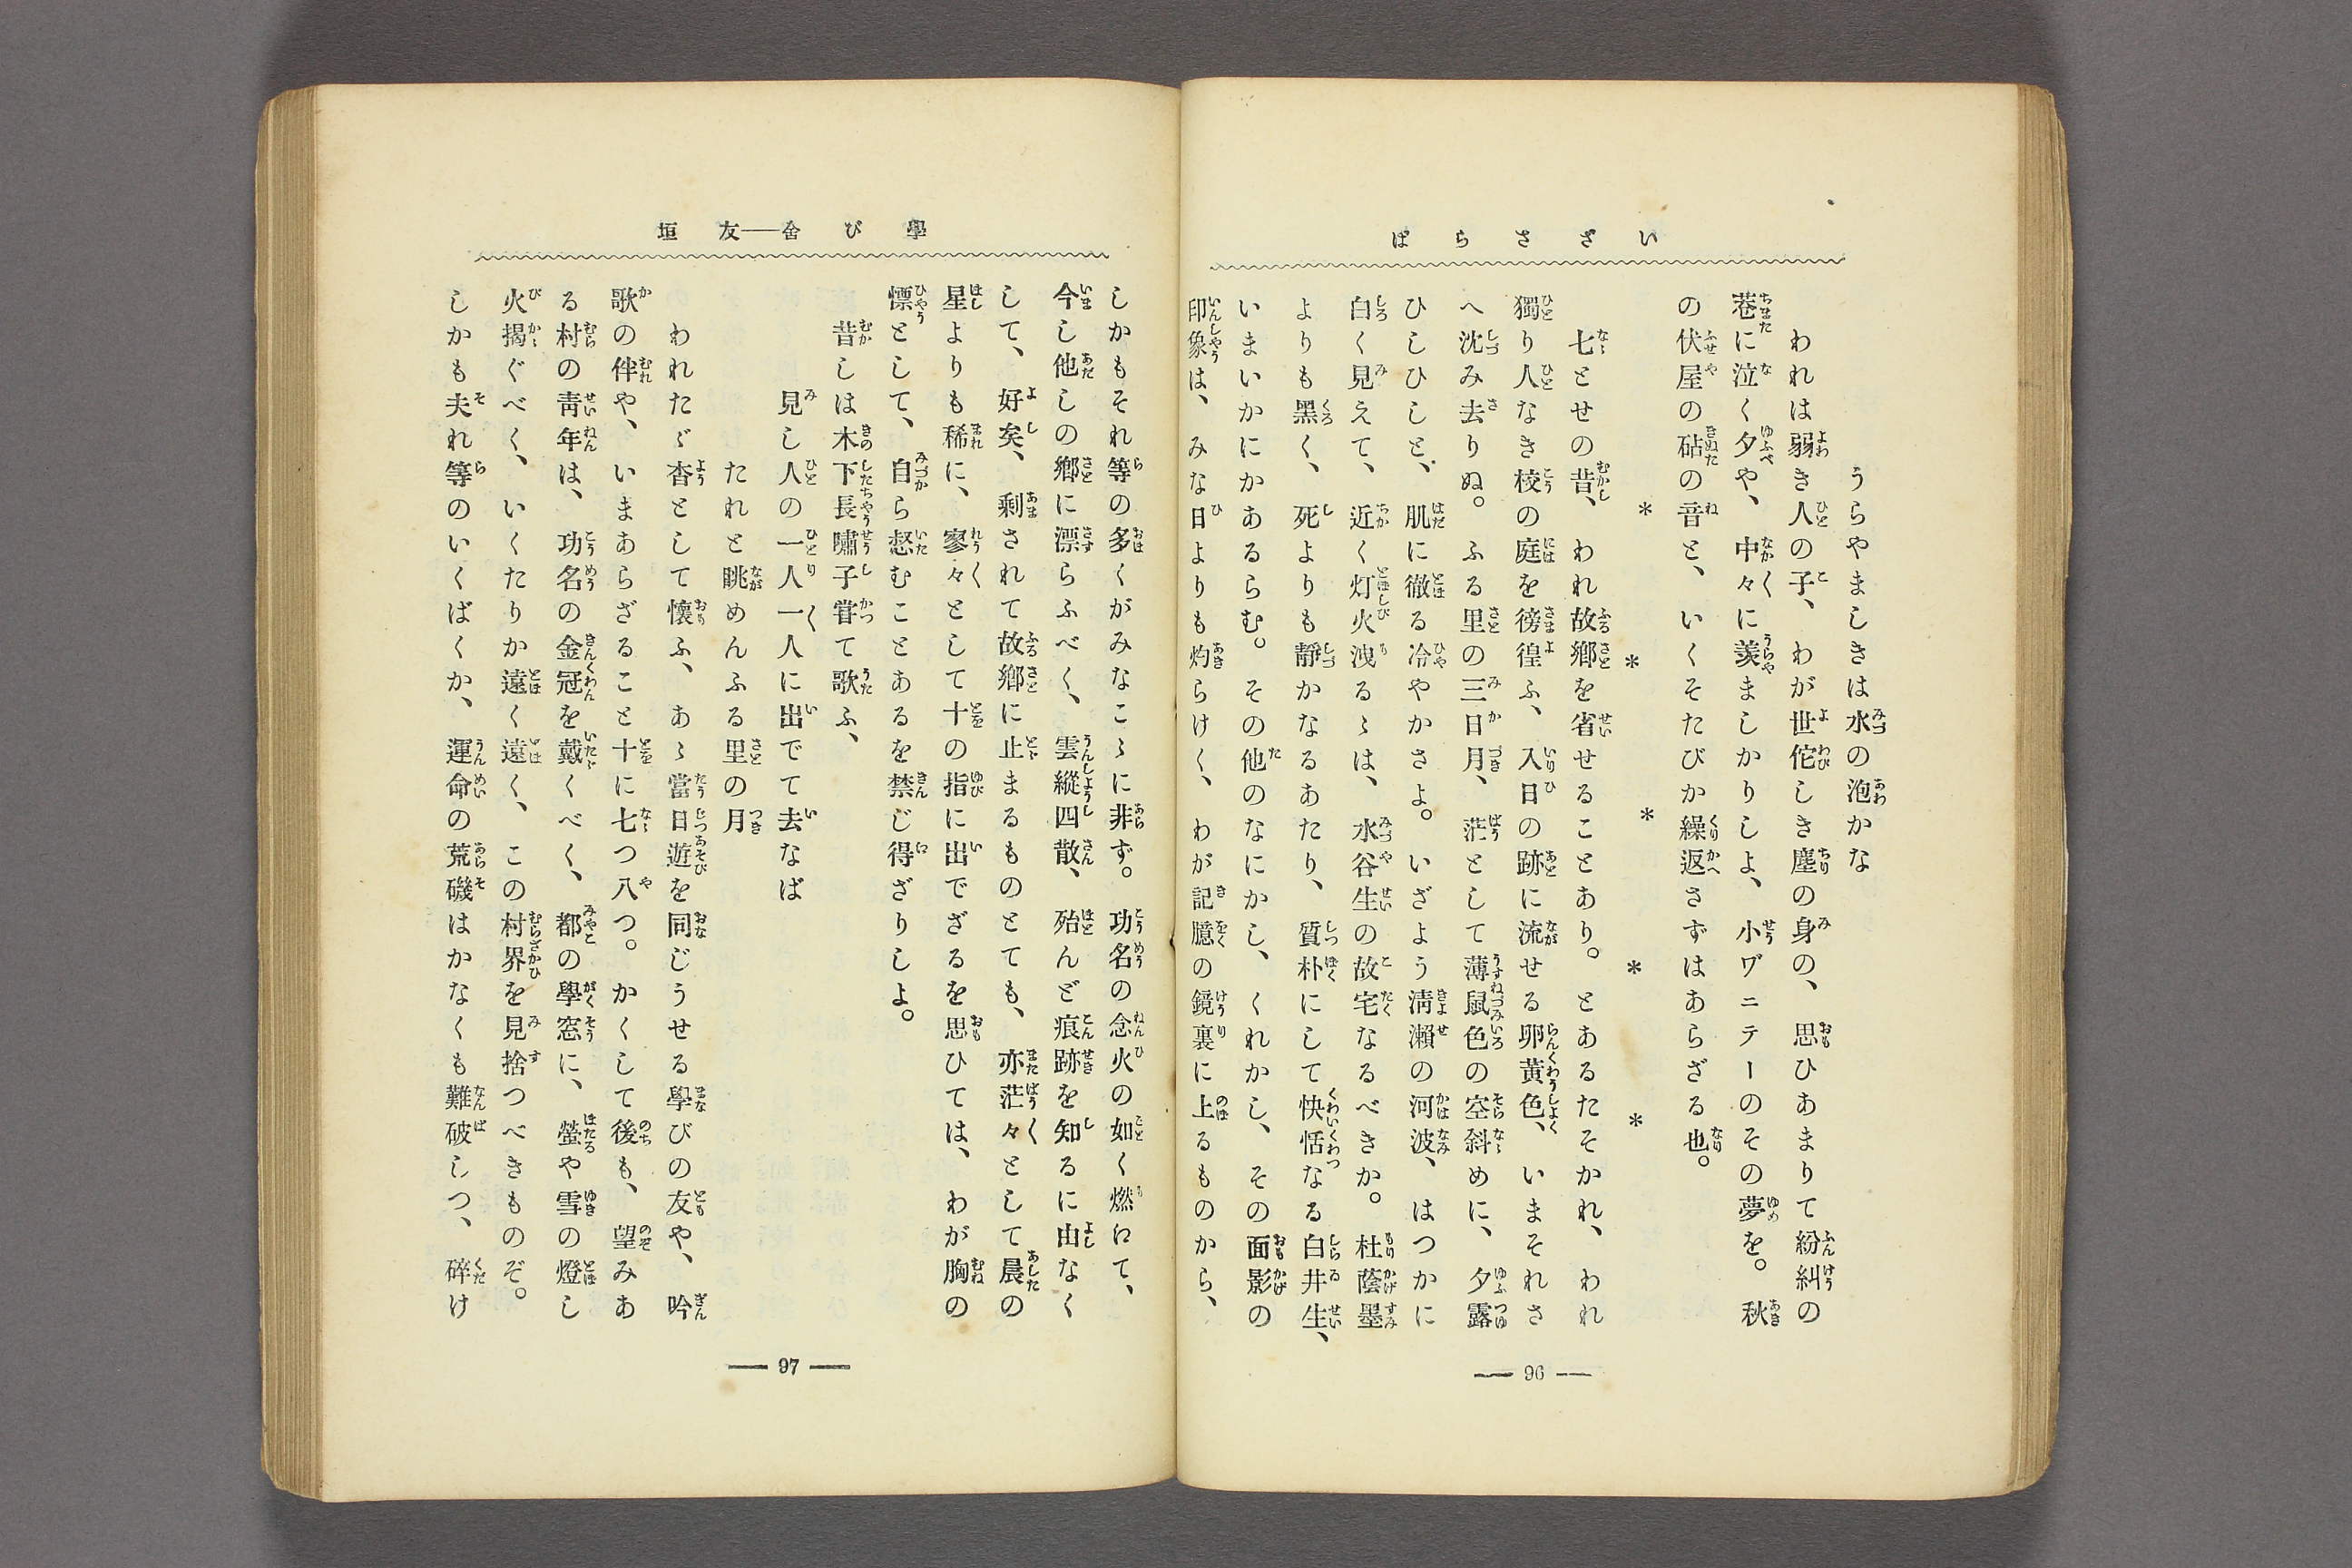 いざさらば
うらやましきは水の泡かな
われは弱き人の子、わが世佗しき塵の身の、思ひあまりて紛糾の
巷に泣く夕や、中々に羨ましかりしよ、小ヷニテーのその夢を。秋
の伏屋の砧の音と、いくそたびか繰返さずはあらざる也。
＊　＊　＊　＊　＊
七とせの昔、われ故鄕を省せることあり。とあるたそかれ、われ
獨り人なき校の庭を徬徨ふ、入日の跡に流せる卵黃色、いまそれさ
へ沈み去りぬ。ふる里の三日月、茫として薄鼠色の空斜めに、夕露
ひしひしと、肌に徹る冷やかさよ。いざよう淸瀨の河波、はつかに
白く見えて、近く灯火洩るゝは、水谷生の故宅なるべきか。杜蔭墨
よりも黑く、死よりも靜かなるあたり、質朴にして快恬なる白井生、
いまいかにかあるらむ。その他のなにかし、くれかし、その面影の
印象は、みな日よりも灼らけく、わが記臆の鏡裏に上るものから、
― 96 ―
學び舍――友垣
しかもそれ等の多くがみなこゝに非ず。功名の念火の如く燃ゎて、
今し他しの鄕に漂らふべく、雲縱四散、殆んど痕跡を知るに由なく
して、好矣、剩されて故鄕に止まるものとても、亦茫々として晨の
星よりも稀に、寥々として十の指に出でざるを思ひては、わが胸の
慓として、自ら愸むことあるを禁じ得ざりしよ。
昔しは木下長嘯子嘗て歌ふ、
見し人の一人一人に出でて去なば
たれと眺めんふる里の月
われたゞ杳として懷ふ、あゝ當日遊を同じうせる學びの友や、吟
歌の伴や、いまあらざること十に七つ八つ。かくして後も、望みあ
る村の靑年は、功名の金冠を戴くべく、都の學窓に、螢や雪の燈し
火揭ぐべく、いくたりか遠く遠く、この村界を見捨つべきものぞ。
しかも夫れ等のいくばくか、運命の荒磯はかなくも難破しつ、碎け
― 97 ―